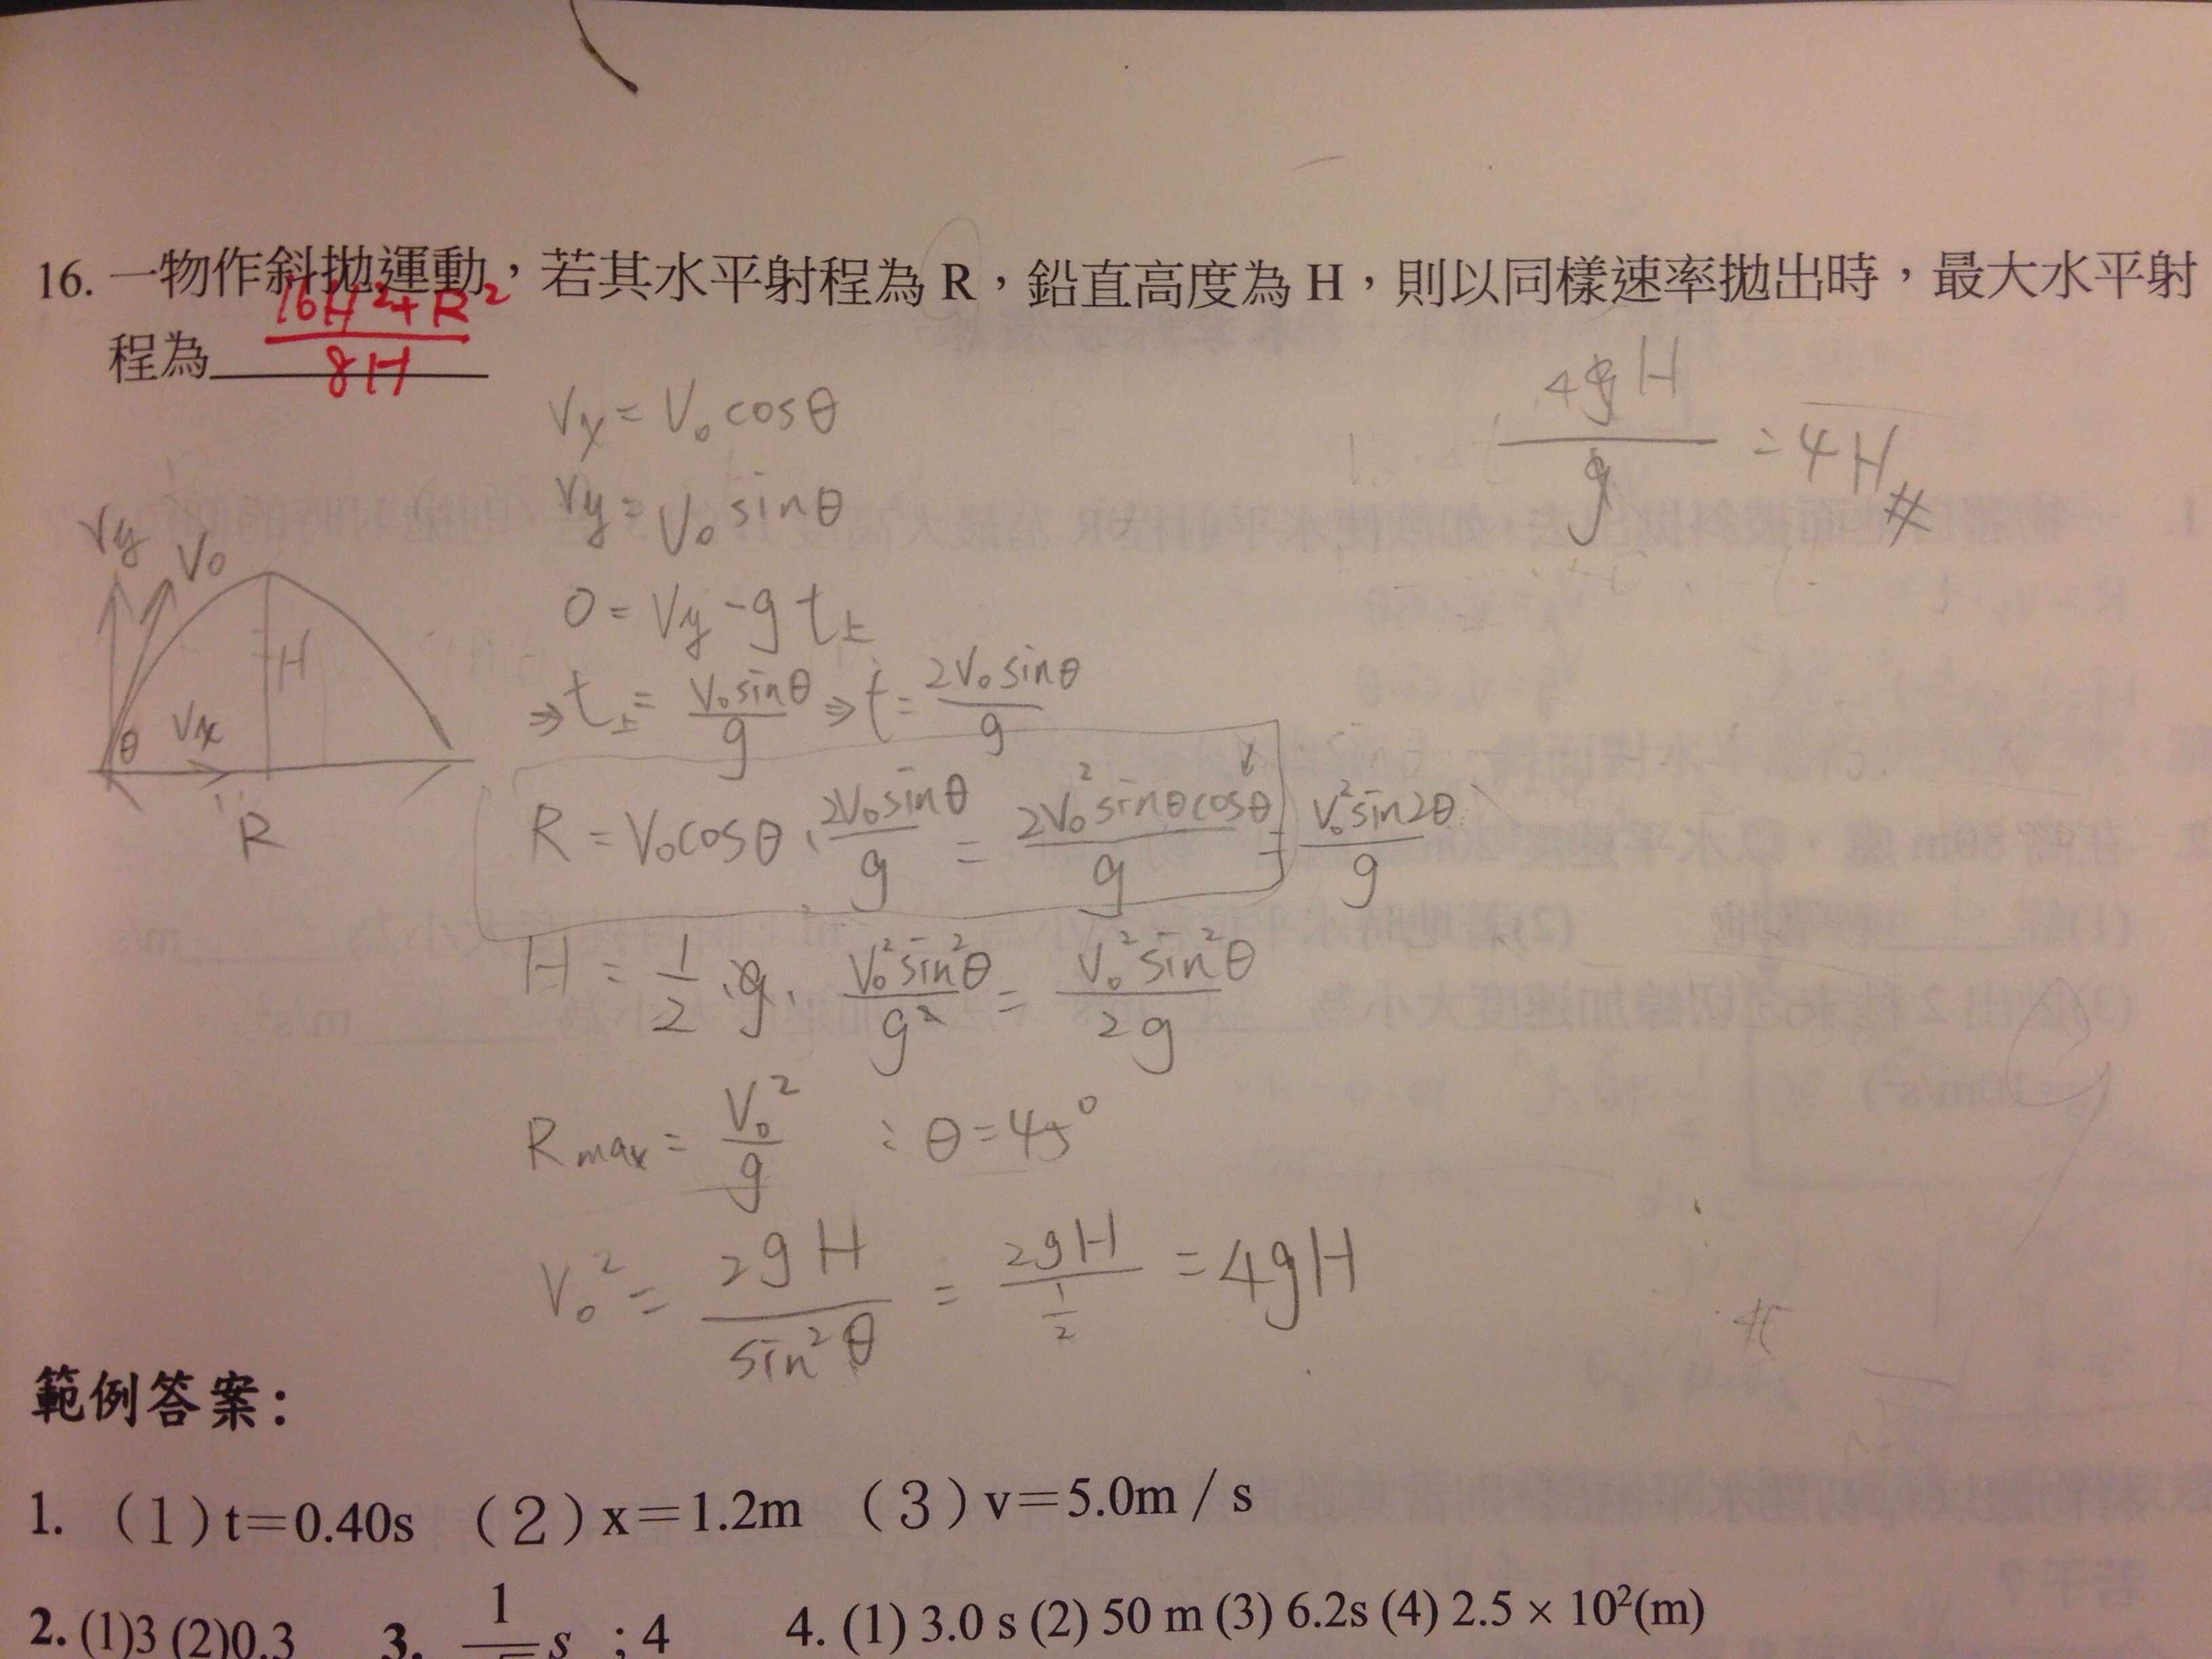 16. 一物作斜拋運動，若其水平射程為 R，鉛直高度為 H，則以同樣速率拋出時，最大水平射
程為 (16H²+R²)/(8H)
4gH/g = 4H #
Vx = V₀ cosθ
Vy = V₀ sinθ
Vy V₀
0 = Vy - g t上
H
⇒ t上 = V₀sinθ/g ⇒ t = 2V₀sinθ/g
θ Vx
R
R = V₀cosθ · 2V₀sinθ/g = 2V₀²sinθcosθ/g = V₀²sin2θ/g
H = 1/2 · g · V₀²sin²θ/g² = V₀²sin²θ/2g
Rmax = V₀²/g : θ = 45°
V₀² = 2gH/sin²θ = 2gH/(1/2) = 4gH
範例答案：
1. （1）t＝0.40s （2）x＝1.2m （3）v＝5.0m / s
2. (1)3 (2)0.3 3. s ; 4 4. (1) 3.0 s (2) 50 m (3) 6.2s (4) 2.5 × 10²(m)